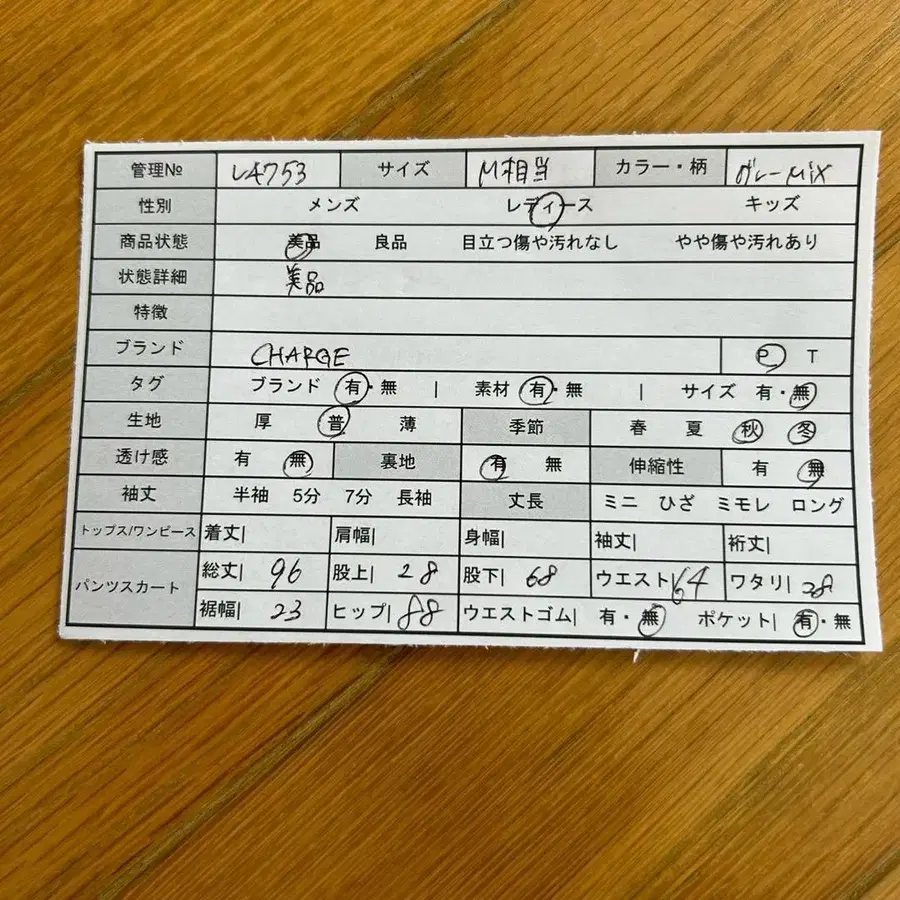 管理№ L4753 サイズ M相当 カラー・柄 グレーMIX
性別 メンズ レディース キッズ
商品状態 美品 良品 目立つ傷や汚れなし やや傷や汚れあり
状態詳細 美品
特徴
ブランド CHARGE P T
タグ ブランド 有・無 | 素材 有・無 | サイズ 有・無
生地 厚 普 薄 季節 春 夏 秋 冬
透け感 有 無 裏地 有 無 伸縮性 有 無
袖丈 半袖 5分 7分 長袖 丈長 ミニ ひざ ミモレ ロング
トップス/ワンピース 着丈| 肩幅| 身幅| 袖丈| 裄丈|
パンツスカート 総丈| 96 股上| 28 股下| 68 ウエスト| 64 ワタリ| 28
裾幅| 23 ヒップ| 88 ウエストゴム| 有・無 ポケット| 有・無